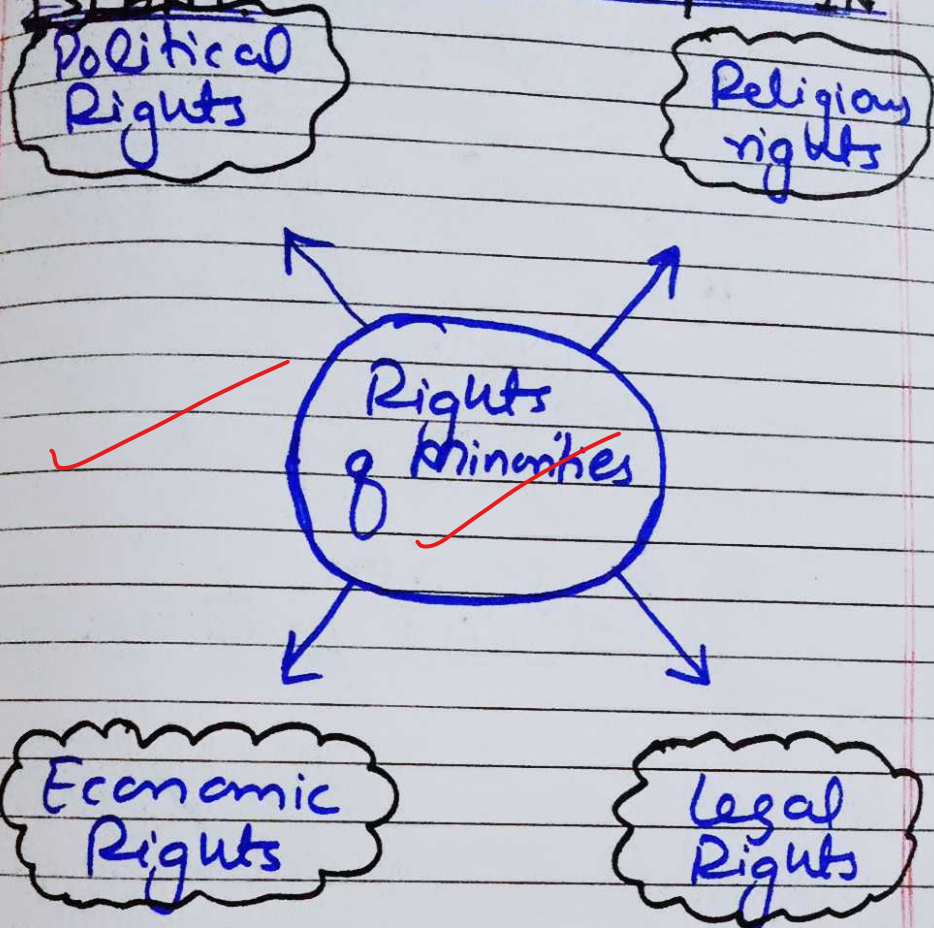 IN
Political
Rights
Religious
rights
Rights
of Minorities
Economic
Rights
Legal
Rights